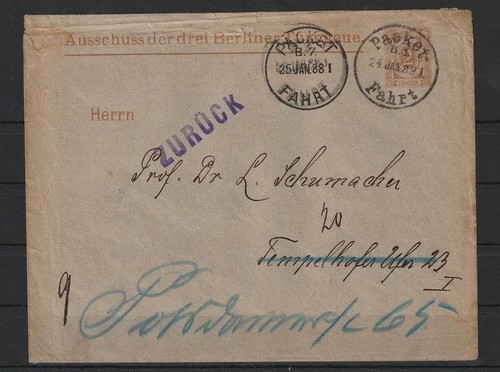 Ausschuss der drei Berliner
PACKET
B. 7.
25 JAN. 88 I
FAHRT
Packet-
24 JAN. 88 I
Fahrt
Herrn
ZURÜCK
Prof. Dr L. Schumacher
20
Tempelhofer Ufer 23
I
9
65